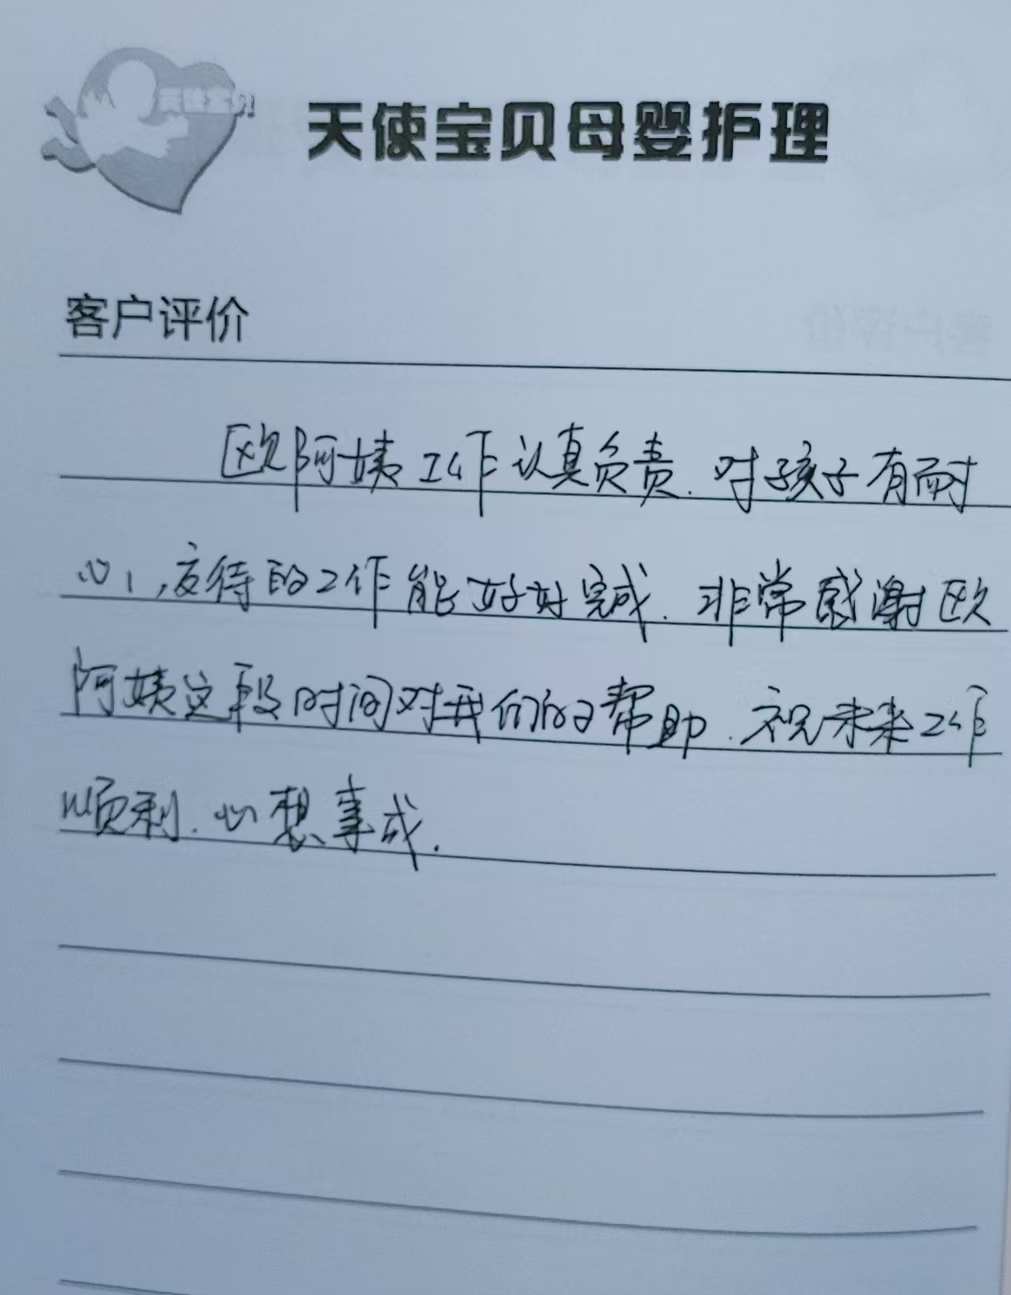 天使宝贝
天使宝贝母婴护理
客户评价
欧阿姨工作认真负责.对孩子有耐
心,交待的工作能好好完成.非常感谢欧
阿姨这段时间对我们的帮助.祝未来工作
顺利.心想事成.